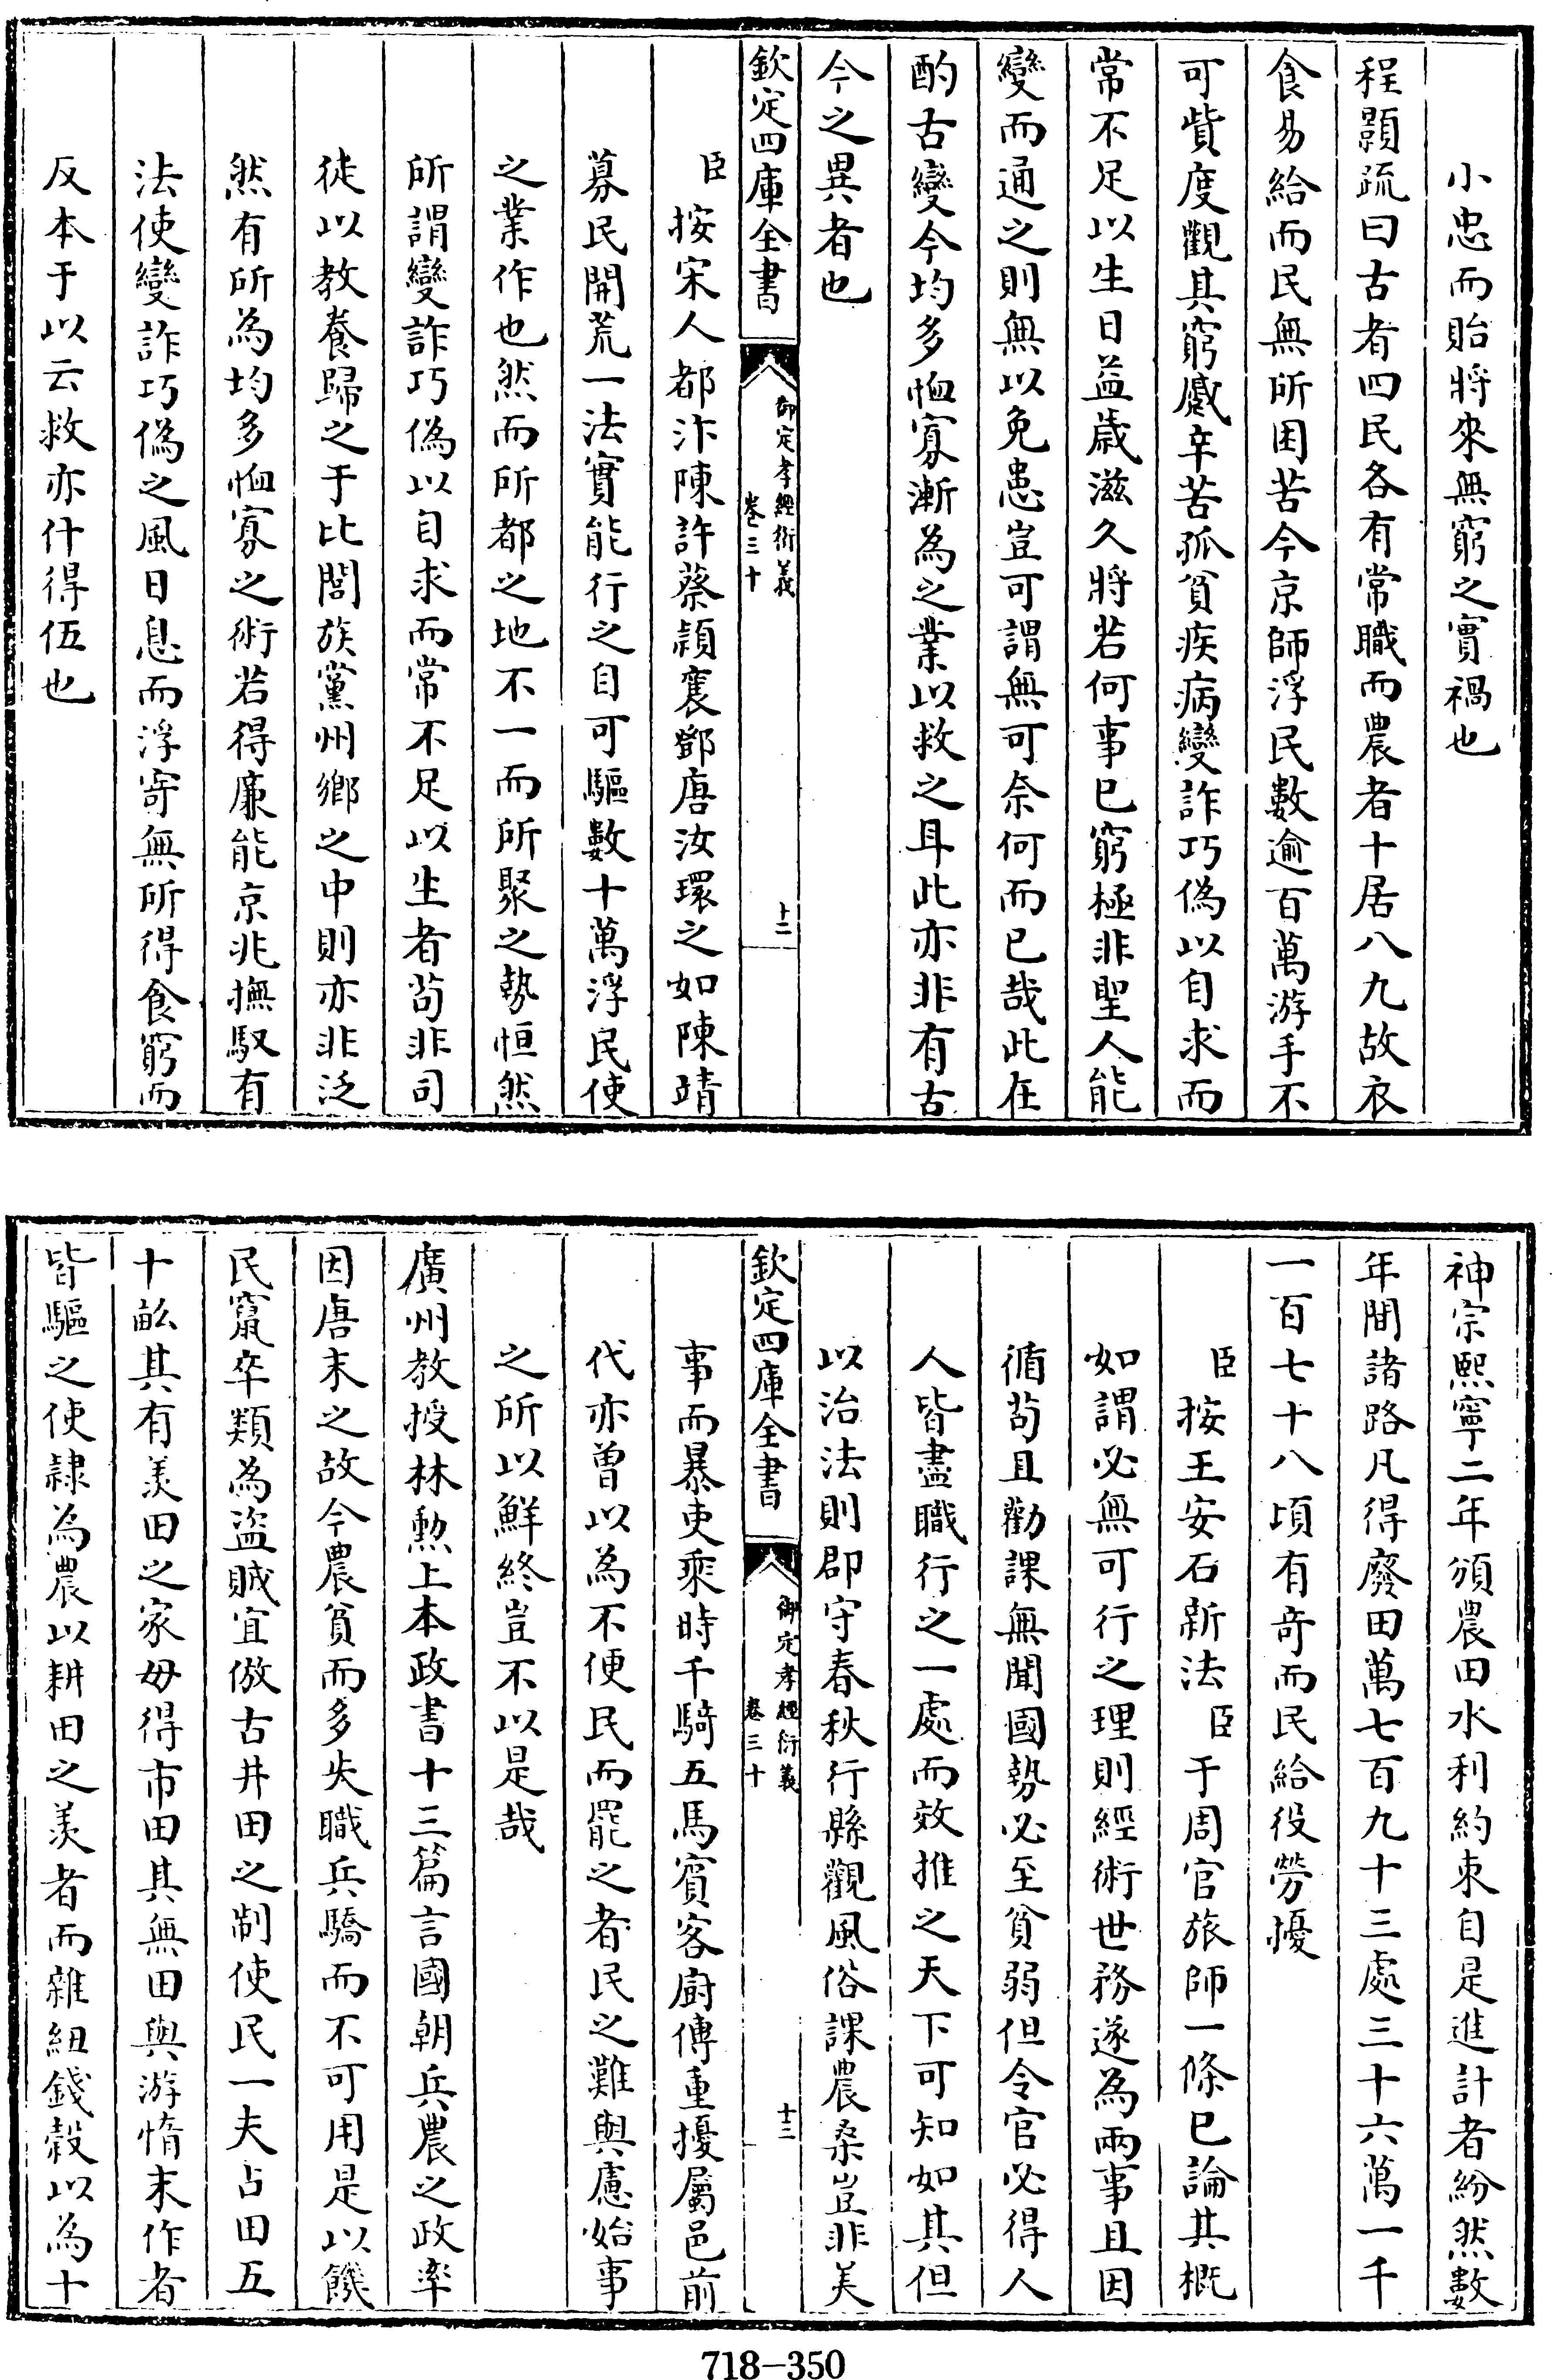 小忠而貽將來無窮之實禍也
程顥疏曰古者四民各有常職而農者十居八九故衣
食易給而民無所困苦今京師浮民數逾百萬游手不
可貲度觀其窮蹙辛苦孤貧疾病變詐巧偽以自求而
常不足以生日益歲滋久將若何事已窮極非聖人能
變而通之則無以免患豈可謂無可奈何而已哉此在
酌古變今均多恤寡漸為之業以救之耳此亦非有古
今之異者也
欽定四庫全書
御定孝經衍義
卷三十
十二
臣按宋人都汴陳許蔡潁襄鄧唐汝環之如陳靖
募民開荒一法實能行之自可驅數十萬浮民使
之業作也然而所都之地不一而所聚之勢恒然
所謂變詐巧偽以自求而常不足以生者苟非司
徒以教養歸之于比閭族黨州鄉之中則亦非泛
然有所為均多恤寡之術若得廉能京兆撫馭有
法使變詐巧偽之風日息而浮寄無所得食窮而
反本于以云救亦什得伍也
神宗熙寧二年頒農田水利約束自是進計者紛然數
年間諸路凡得廢田萬七百九十三處三十六萬一千
一百七十八頃有奇而民給役勞擾
臣按王安石新法臣于周官旅師一條已論其概
如謂必無可行之理則經術世務遂為兩事且因
循苟且勸課無聞國勢必至貧弱但令官必得人
人皆盡職行之一處而效推之天下可知如其但
以治法則郡守春秋行縣觀風俗課農桑豈非美
欽定四庫全書
御定孝經衍義
卷三十
十三
事而暴吏乘時千騎五馬賓客廚傳重擾屬邑前
代亦曾以為不便民而罷之者民之難與慮始事
之所以鮮終豈不以是哉
廣州教授林勲上本政書十三篇言國朝兵農之政率
因唐末之故今農貧而多失職兵驕而不可用是以饑
民竄卒類為盜賊宜倣古井田之制使民一夫占田五
十畝其有羨田之家毋得市田其無田與游惰末作者
皆驅之使隸為農以耕田之羨者而雜紐錢穀以為十
718-350